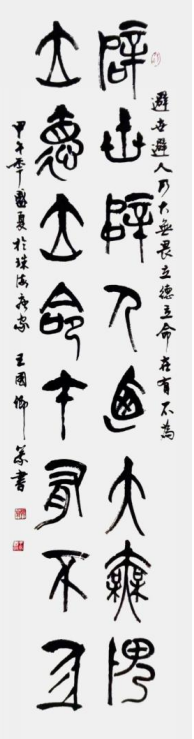 避世避人乃大無畏立德立命在有不為
辟世辟人乃大無畏
立德立命在有不為
甲午年盛夏於珠海唐家 王國卿 篆書